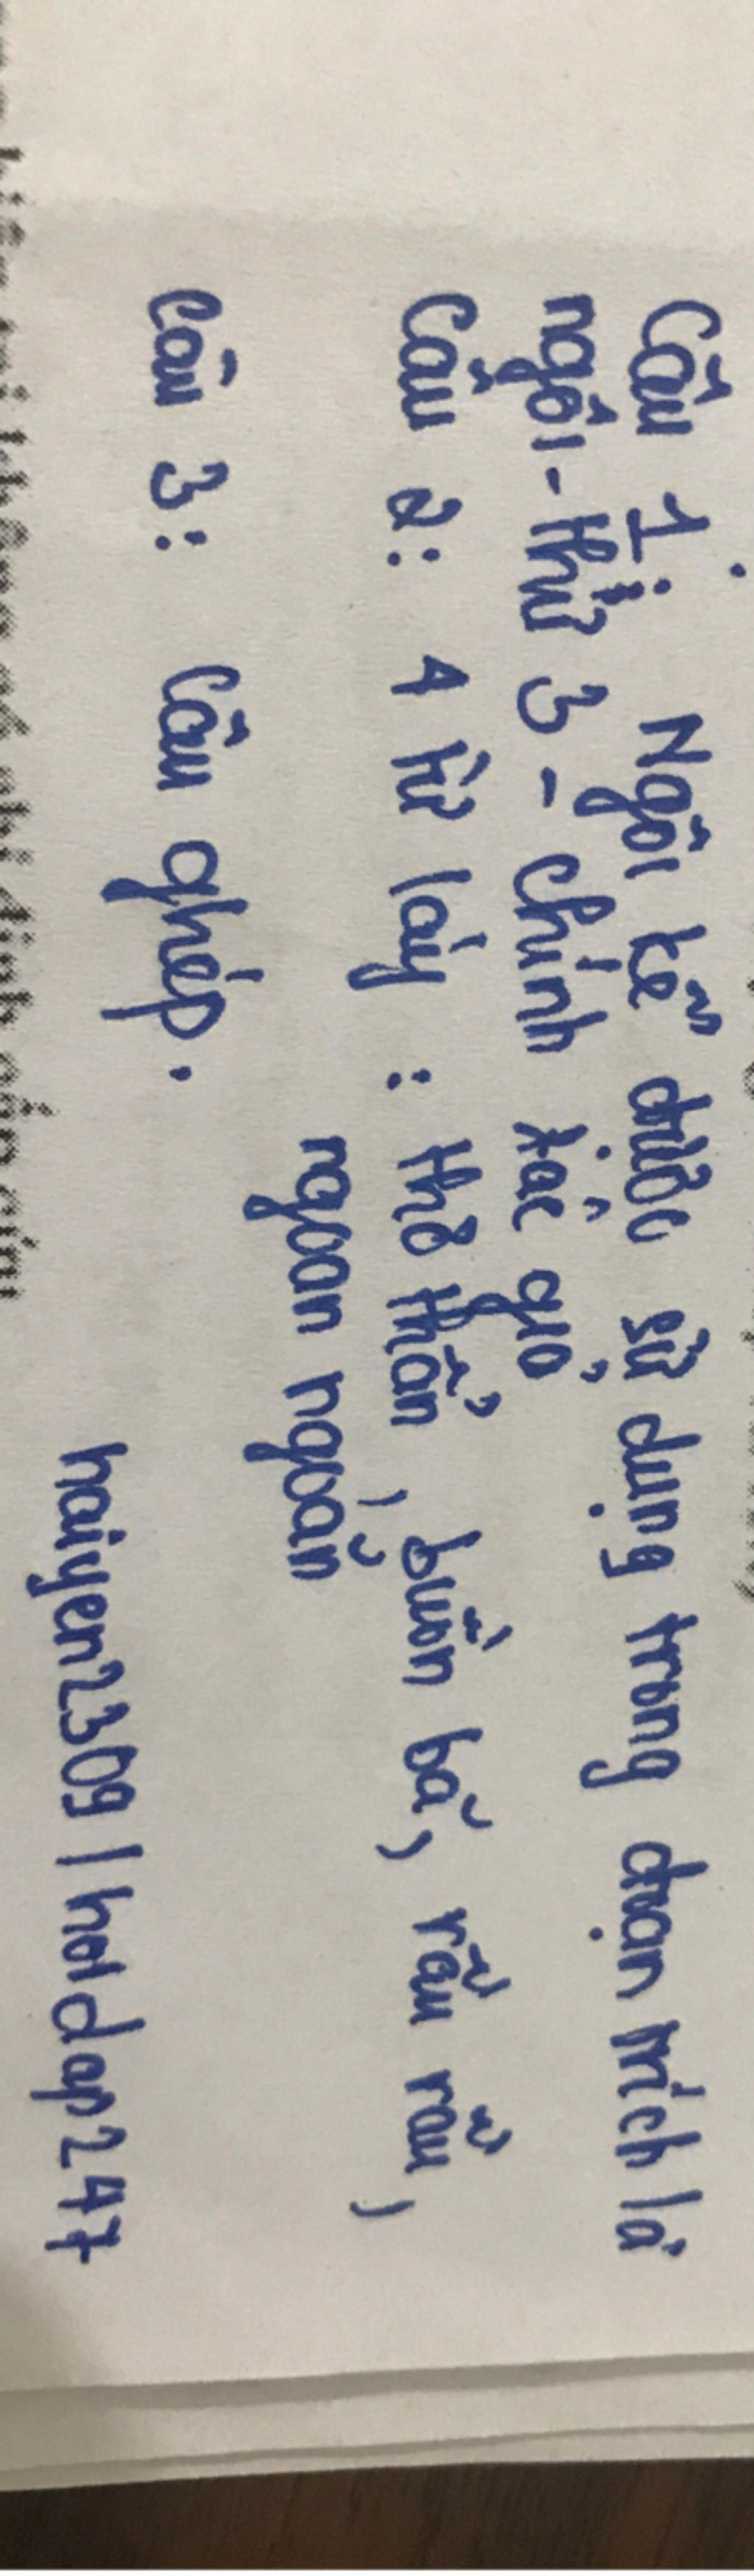 Câu 1: Ngôi kể được sử dụng trong đoạn trích là
ngôi - thứ 3 - chính tác giả
Câu 2: 4 từ láy : thơ thẩn, buồn bã, rầu rầu,
ngoan ngoãn
Câu 3: Câu ghép.
haiyen2309 | hoidap247